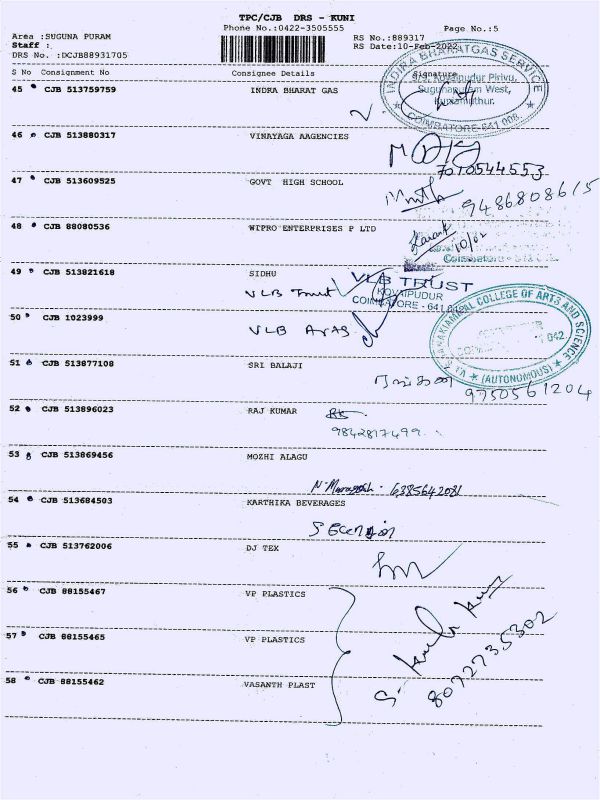 TPC/CJB DRS - KUNI
Phone No.:0422-3505555
Page No.:5
Area :SUGUNA PURAM
RS No.:889317
Staff :
RS Date:10-Feb-2022
DRS No. :DCJB88931705
S No Consignment No Consignee Details Signature
45 CJB 513759759 INDRA BHARAT GAS
INDIRA BHARATGAS SERVICE
Kovaipudur Pirivu,
Sugunapuram West,
Kuniamuthur.
COIMBATORE-641 008
46 CJB 513880317 VINAYAGA AAGENCIES
7010544553
47 CJB 513609525 GOVT HIGH SCHOOL
9486808615
48 CJB 88080536 WIPRO ENTERPRISES P LTD
10/02
Coimbatore
49 CJB 513821618 SIDHU
VLB Trust
VLB TRUST
KOVAIPUDUR
COIMBATORE - 641
50 CJB 1023999
VLB
COLLEGE OF ARTS AND SCIENCE
(AUTONOMOUS)
51 CJB 513877108 SRI BALAJI
9750561204
52 CJB 513896023 RAJ KUMAR
9842817499
53 CJB 513869456 MOZHI ALAGU
6385642081
54 CJB 513684503 KARTHIKA BEVERAGES
55 CJB 513762006 DJ TEX
56 CJB 88155467 VP PLASTICS
57 CJB 88155465 VP PLASTICS
58 CJB 88155462 VASANTH PLAST
8072735302